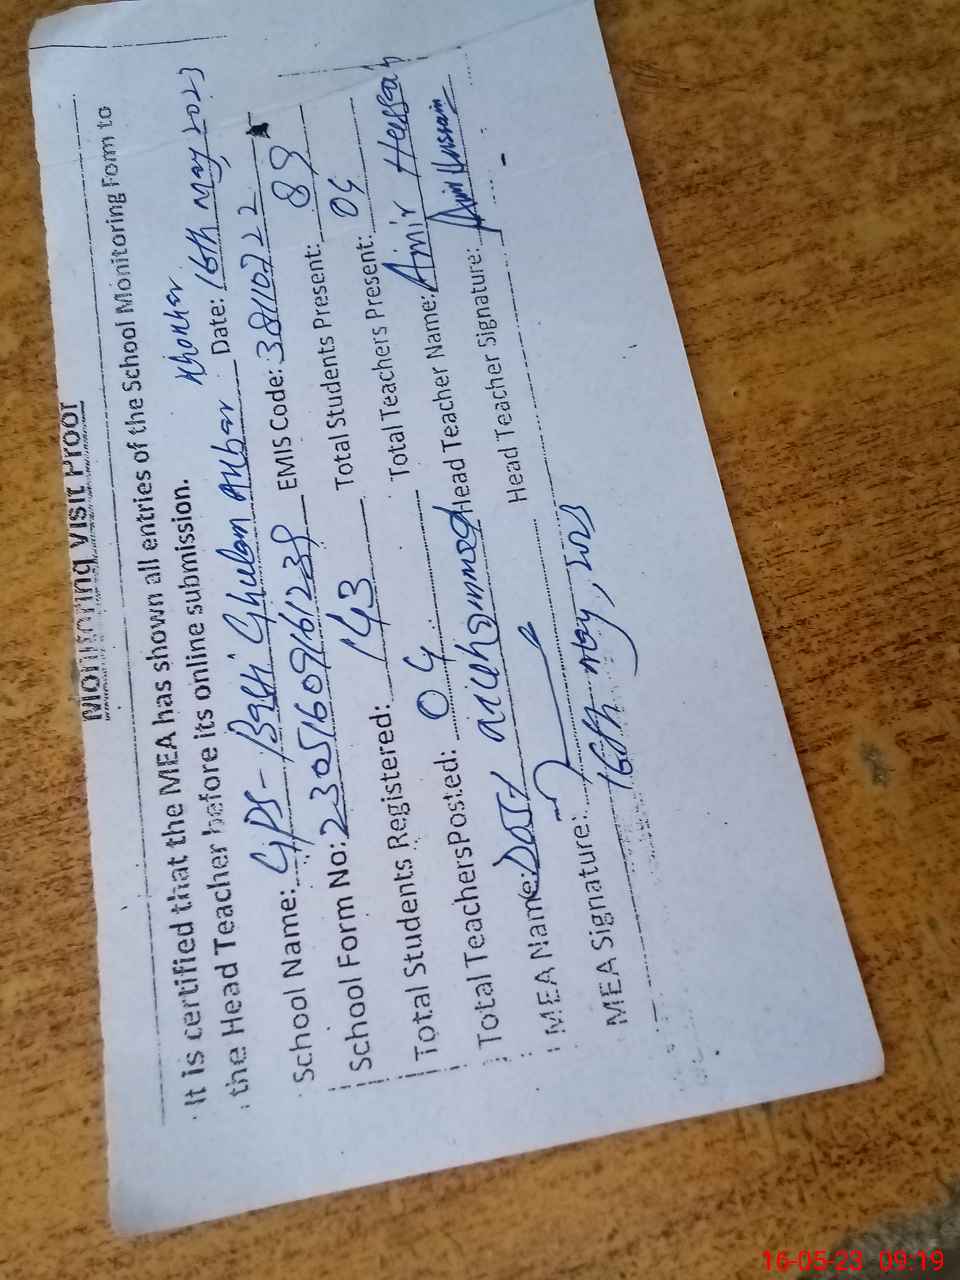 Monitoring Visit Proof
It is certified that the MEA has shown all entries of the School Monitoring Form to
the Head Teacher before its online submission.
School Name: GPS- Ghulam Akbar Date: 16th May 2023
School Form No: EMIS Code: 38110222
Total Students Registered: 143 Total Students Present: 89
Total TeachersPosted: 04 Total Teachers Present: 04
MEA Name: Muhammad Head Teacher Name: Amir Hussain
MEA Signature: Head Teacher Signature: Amir Hussain
16th May, 2023
16-05-23 09:19